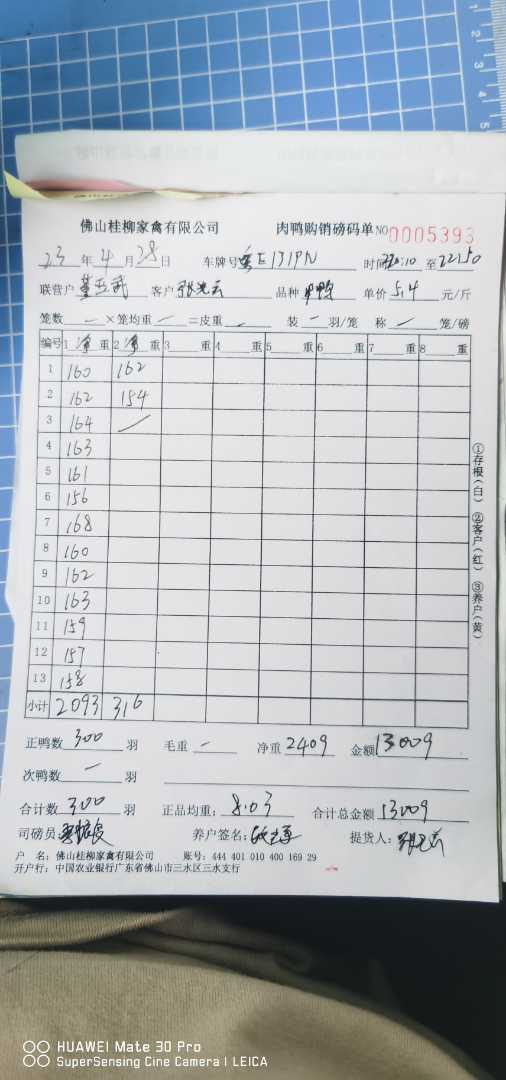 佛山桂柳家禽有限公司 肉鸭购销磅码单 NO 0005393
23 年 4 月 28 日 车牌号 粤E131PN 时间 22:10 至 22:50
联营户 客户 张光云 品种 单价 5.4 元/斤
笼数 — ×笼均重 — =皮重 — 装 — 羽/笼 称 — 笼/磅
编号 1 净 重 2 净 重 3 重 4 重 5 重 6 重 7 重 8 重
1 160 162
2 162 154
3 164
4 163
5 161
6 156
7 168
8 160
9 162
10 163
11 159
12 157
13 158
小计 2093 316
①存根(白) ②客户(红) ③养户(黄)
正鸭数 300 羽 毛重 — 净重 2409 金额 13009
次鸭数 — 羽
合计数 300 羽 正品均重: 8.03 合计总金额 13009
司磅员: 养户签名: 提货人: 张光云
户 名: 佛山桂柳家禽有限公司 账号: 444 401 010 400 169 29
开户行: 中国农业银行广东省佛山市三水区三水支行
HUAWEI Mate 30 Pro
SuperSensing Cine Camera | LEICA